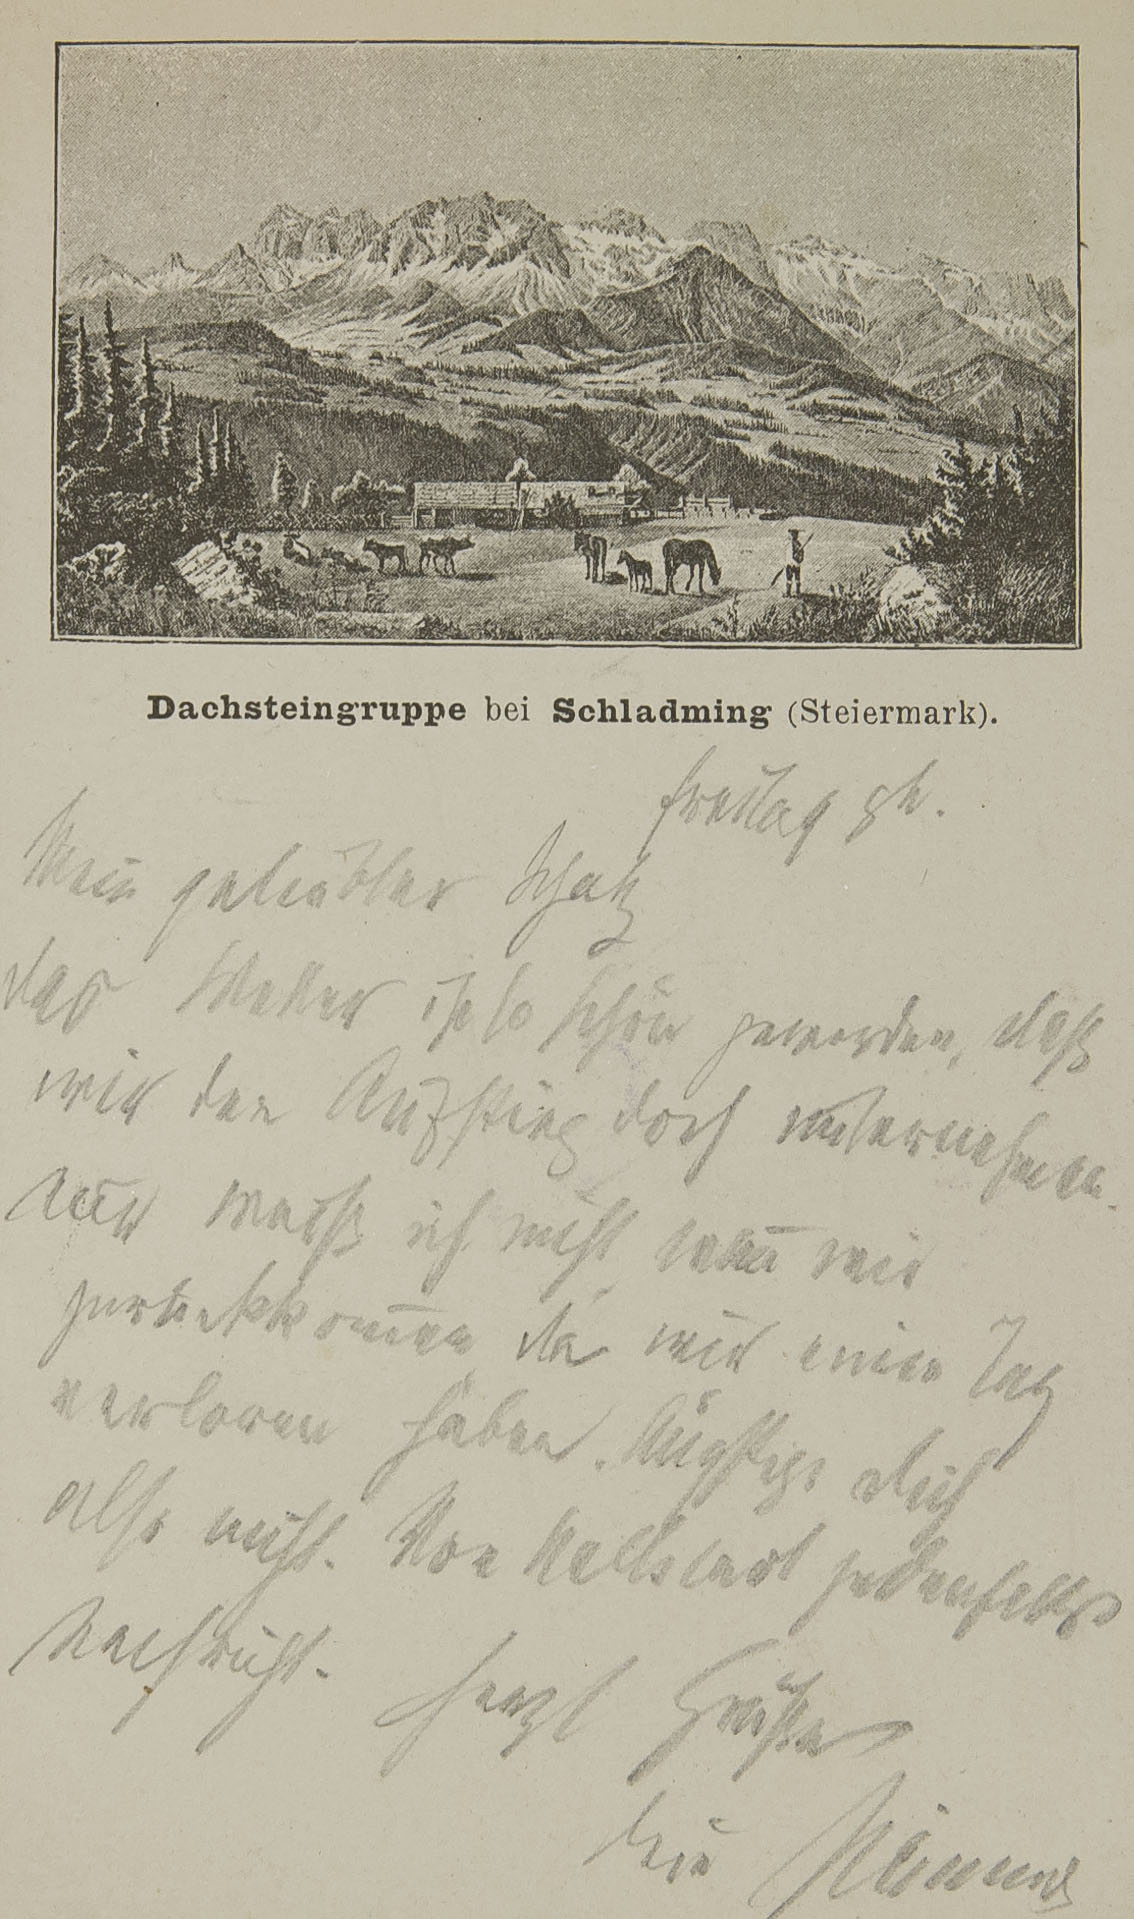 Dachsteingruppe bei Schladming (Steiermark).
Freitag 8h.
Mein geliebter Schatz
das Wetter ist so schön geworden, daß
wir den Aufstieg doch unternehmen.
Nur weiß ich nicht wan̄ wir
zurückkom̄en da wir einen Tag
verloren haben. Ängstige dich
also nicht. Von Hallstadt jedenfalls
Nachricht. Herzl Grüße
Dein